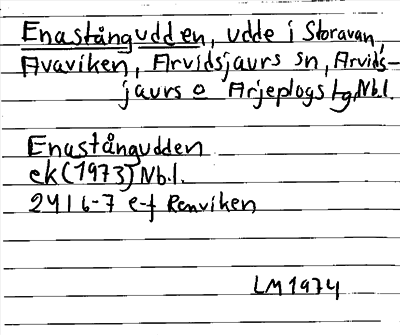 Enastångudden, udde i Storavan,
Avaviken, Arvidsjaurs sn, Arvids-
jaurs o Arjeplogs tg, Nbl.
Enastångudden
ek (1973) Nb.l.
241 6-7 e-f Renviken
LM 1974